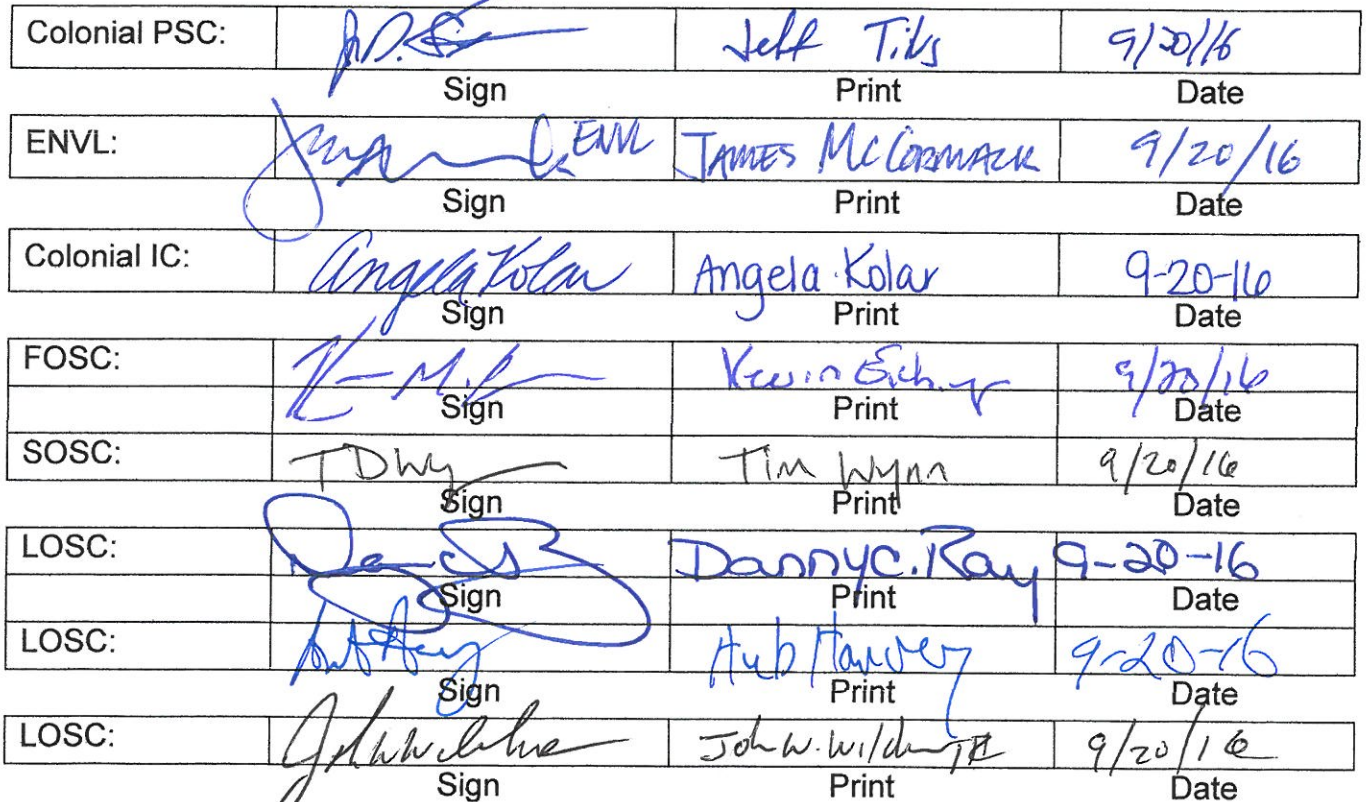 Colonial PSC: Jeff 9/20/16
Sign Print Date
ENVL: ENVL JAMES MCCORMACK 9/20/16
Sign Print Date
Colonial IC: Angela Kolar Angela Kolar 9-20-16
Sign Print Date
FOSC: Kevin 9/20/16
Sign Print Date
SOSC: Tim Wynn 9/20/16
Sign Print Date
LOSC: Danny C. Ray 9-20-16
Sign Print Date
LOSC: Hub Harvey 9-20-16
Sign Print Date
LOSC: John W. 9/20/16
Sign Print Date